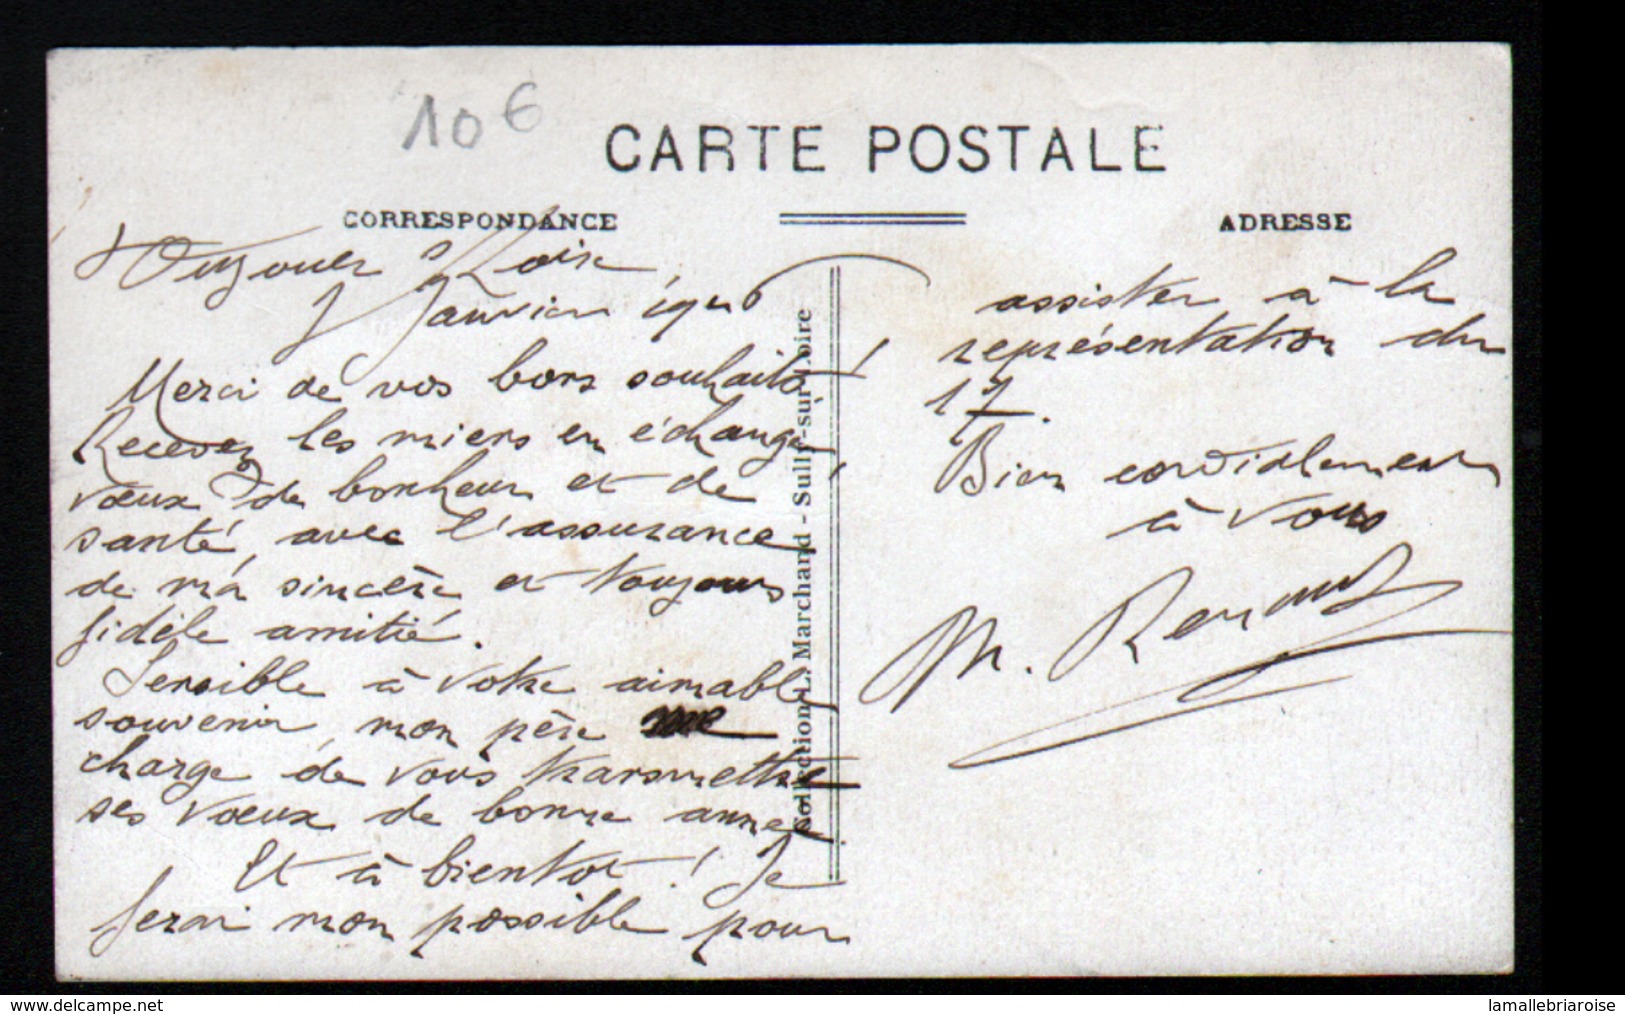 10 €
CARTE POSTALE
CORRESPONDANCE
ADRESSE
Ouzouer s/ Loire
Janvier 1926
Merci de vos bons souhaits !
Recevez les miens en échange,
vœux de bonheur et de
santé, avec l'assurance
de ma sincère et toujours
fidèle amitié.
Sensible à votre aimable
souvenir, mon père me
charge de vous transmettre
ses vœux de bonne année.
Et à bientôt ! Je
ferai mon possible pour
Collection L. Marchand - Sully-sur-Loire
assister à la
représentation du
17.
Bien cordialement
à vous
M. Renault
www.delcampe.net
lamallebriaroise